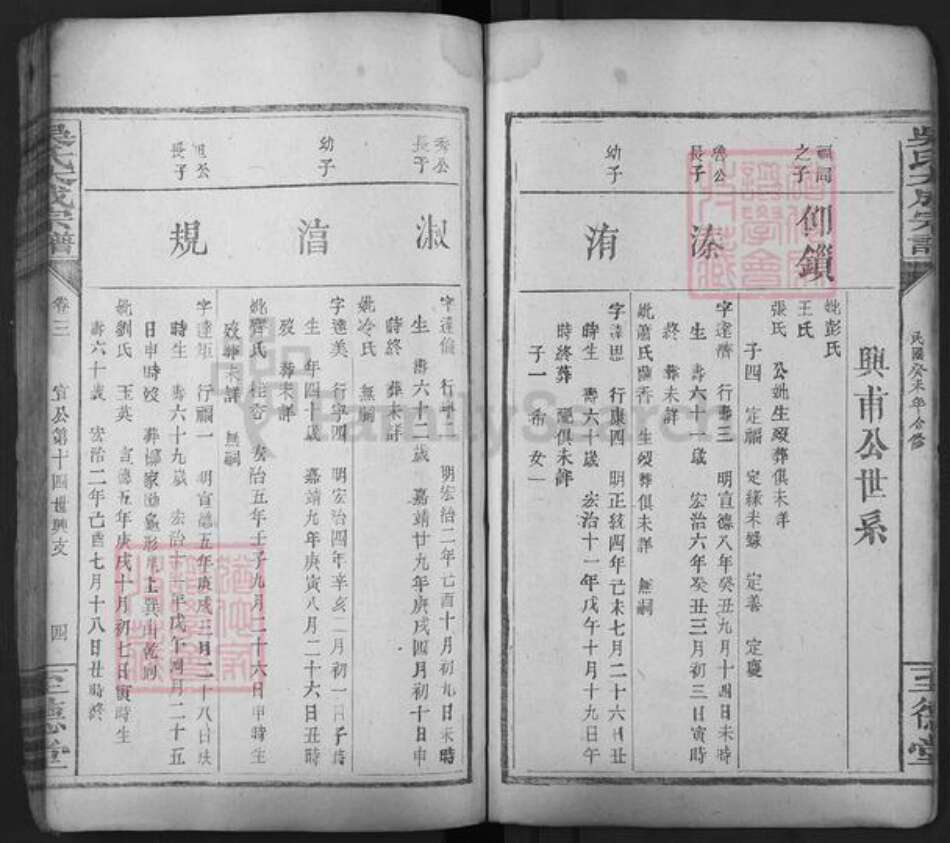 吳氏大成宗譜
民國癸未年合修
三德堂
興甫公世系
福同
之子
仰鎖
妣彭氏
王氏
張氏 公妣生歿葬俱未詳
子四 定福 定緣 未嫁 定善 定慶
魯公
長子
溱
字達濟 行壽三 明宣德八年癸丑九月十四日未時
生 壽六十一歲 宏治六年癸丑三月初三日寅時
終 葬未詳
妣蕭氏蘭香 生歿葬俱未詳 無嗣
幼子
洧
字達思 行康四 明正統四年己未七月二十六日丑
時生 壽六十歲 宏治十一年戊午十月十九日午
時終葬 俱未詳
子一 希 女一
秀公
長子
淑
字達倫 行 明宏治二年己酉十月初九日未時
生 壽六十二歲 嘉靖廿九年庚戌四月初十日申
時終 葬未詳
妣冷氏 無嗣
幼子
湻
字達美 行寧四 明宏治四年辛亥二月初一日子時
生 年四十歲 嘉靖九年庚寅八月二十六日丑時
歿 葬未詳
妣 氏 桂 宏治五年壬子九月二十六日申時生
歿葬未詳 無嗣
旭公
長子
規
字達矩 行福一 明宣德五年庚戌三月二十八日
時生 壽六十九歲 宏治十一年戊午四月二十五
日申時歿 葬 家 形 上巽山乾向
妣劉氏 玉英 宣德五年庚戌十月初七日寅時生
壽六十歲 宏治二年己酉七月十八日丑時終
吳氏大成宗譜
卷三
宣公第十四世興支
四
三德堂
FamilySearch